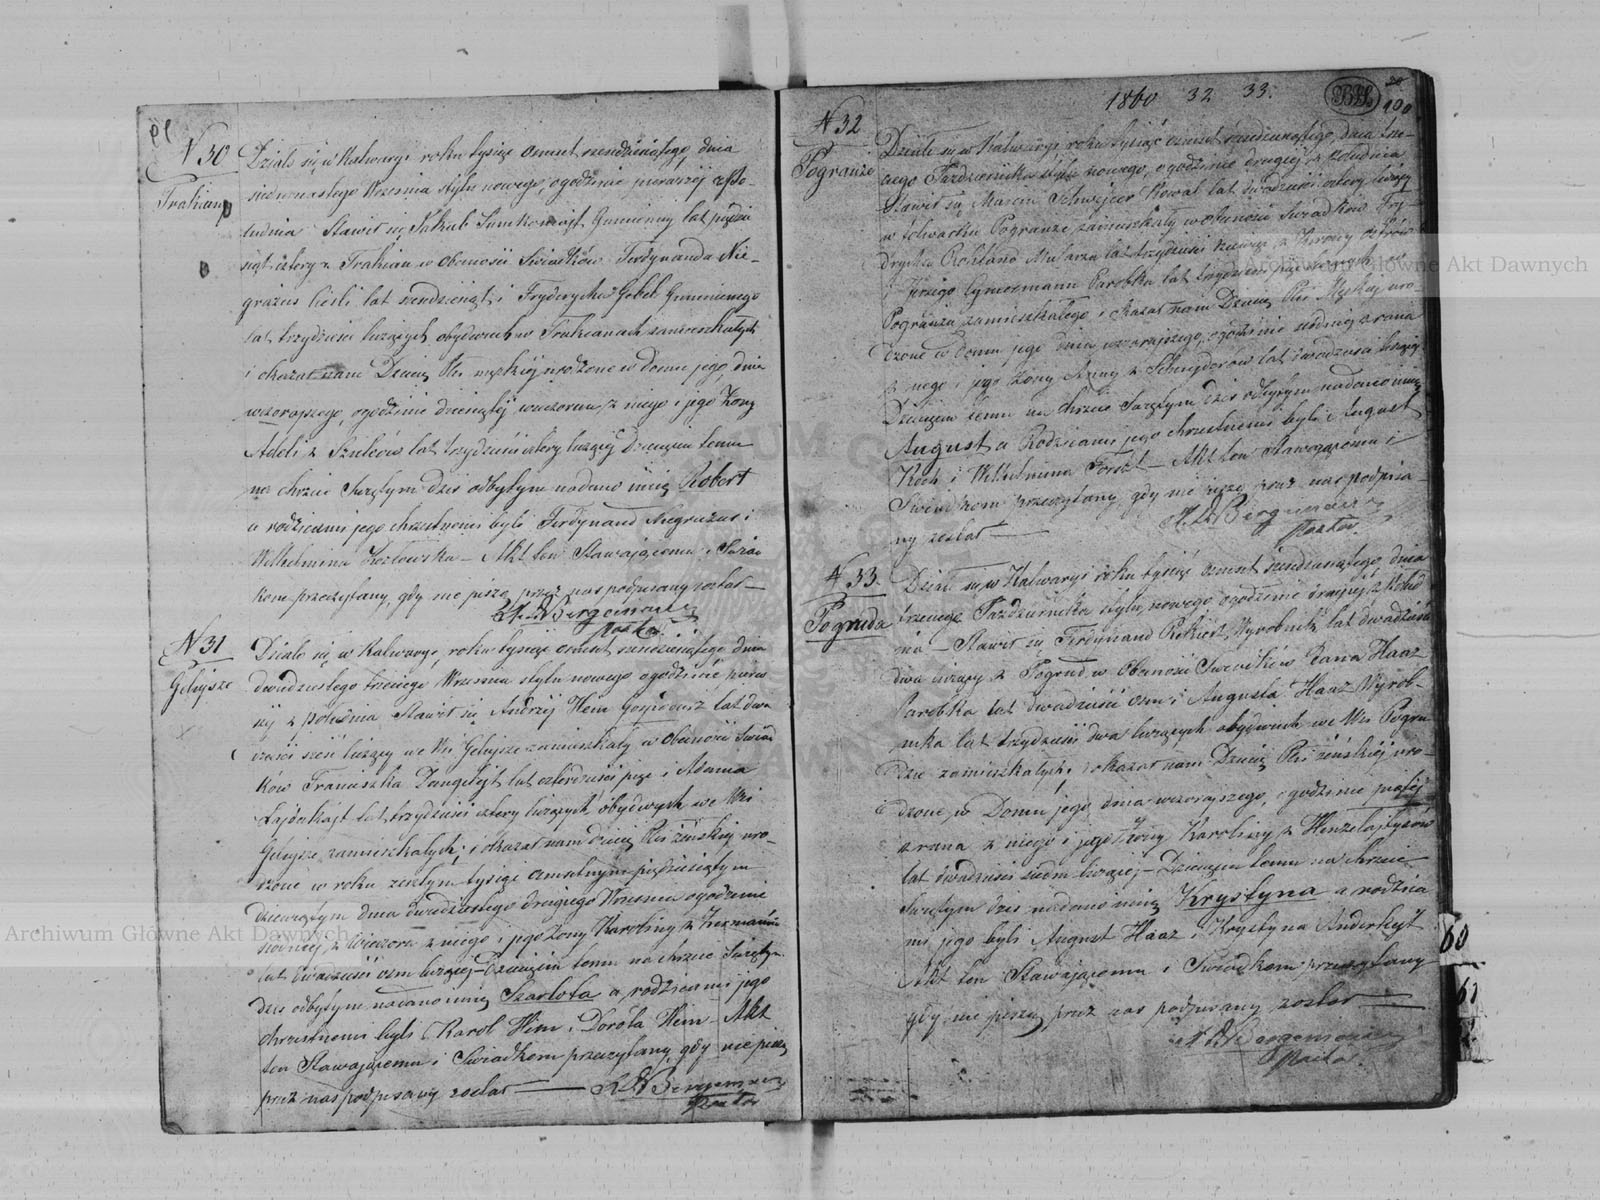 N 30
Trakiany
Działo się w Kalwaryi roku tysiąc osmset szesdziesiątego dnia
siedmnastego Wrzesnia stylu nowego, o godzinie pierwszej z Po-
łudnia Stawił się Jakub Gumienny lat pięćdzie
siąt cztery z Trakian w obecnosci Swiadków Ferdynanda Nie-
grażus lat szesdziesiąt, i Fryderyka Gebel Gumiennego
lat trzydzieści liczących obydwuch w Trakianach zamieszkałych
i okazał nam Dziecię Płci męzkiej urodzone w domu jego, dnia
wczorajszego, o godzinie dziesiątej wieczorem z niego i jego Żony
Adeli z lat trzydzieści cztery liczącej Dziecięciu temu
na chrzcie Swiętym dzis odbytym nadano imię Robert
a rodzicami jego chrzestnemi byli Ferdynand Niegrażus i
Wilhelmina Kozłowska – Akt ten Stawającemu i Świad
kom przeczytany, gdy nie piszą przez nas podpisany został —
Pastor
N 31
Gelujsze
Działo się w Kalwaryi, roku tysiąc osmset szesdziesiątego dnia
dwudziestego trzeciego Wrzesnia stylu nowego o godzinie pierw
szej z południa Stawił się Andrzej Hem Gospodarz lat dwa
dzieści sześć liczący we Wsi Gelujsze zamieszkały w obecności Swiad
ków Franciszka lat czterdzieści pięć i Adama
lat trzydzieści cztery liczących obydwuch we Wsi
Gelujsze zamieszkałych, i okazał nam dziecię Płci żeńskiej uro-
dzone w roku zeszłym tysiąc osmsetnym pięćdziesiątym
dziewiątym dnia dwudziestego drugiego Wrzesnia o godzinie
z Wieczora z niego i jego Żony Karoliny z
lat dwadzieści osm liczącej – Dziecięciu temu na chrzcie Swiętym
dzis odbytym nadano imię Szarlota a rodzicami jego
chrzestnemi byli Karol Hem i Dorota Hem – Akt
ten Stawającemu i Swiadkom przeczytany, gdy nie piszą
przez nas podpisany został —
Pastor
1860 32 33.
100
N 32
Pogranże
Działo się w Kalwaryi roku tysiąc osmset szesdziesiątego, dnia trze-
ciego Pazdziernika stylu nowego, o godzinie drugiej z południa
Stawił się Marcin Schwejcer Kowal lat dwadzieści cztery liczący
w folwarku Pogranże zamieszkały w obecności Swiadków Fry-
dryka Mularza lat trzydzieści
i Jerzego Parobka lat
Pogranża zamieszkałego i okazał nam Dziecię Płci Męzkiej uro-
dzone w domu jego dnia wczorajszego, o godzinie siódmej z rana
z niego i jego Żony Anny z lat dwadzieścia liczącej
Dziecięciu temu na chrzcie Swiętym dzis odbytym nadano imię
August a Rodzicami jego chrzestnemi byli August
Koch i Wilhelmina Forszt – Akt ten Stawającemu i
Swiadkom przeczytany, gdy nie piszą przez nas podpisa-
ny został —
Pastor
N 33
Pogruda
Działo się w Kalwaryi roku tysiąc osmset szesdziesiątego, dnia
trzeciego Pazdziernika stylu nowego o godzinie drugiej z Połud
nia – Stawił się Ferdynand Wyrobnik lat dwadzieścia
dwa liczący z Pogrud w Obecności Swiadków Jana Haaz
Parobka lat dwadzieści osm i Augusta Haaz Wyrob-
nika lat trzydzieści dwa liczących obydwuch we Wsi Pogru
dzie zamieszkałych, i okazał nam Dziecię Płci żeńskiej uro-
dzone w Domu jego dnia wczorajszego, o godzinie piątej
z rana z niego i jego Żony Karoliny z
lat dwadzieści siedm liczącej – Dziecięciu temu na chrzcie
Swiętym dzis nadano imię Krystyna a rodzica
mi jego byli August Haaz i Krystyna
Akt ten Stawającemu i Swiadkom przeczytany
gdy nie piszą przez nas podpisany został —
Pastor
60
61
Archiwum Główne Akt Dawnych
Archiwum Główne Akt Dawnych